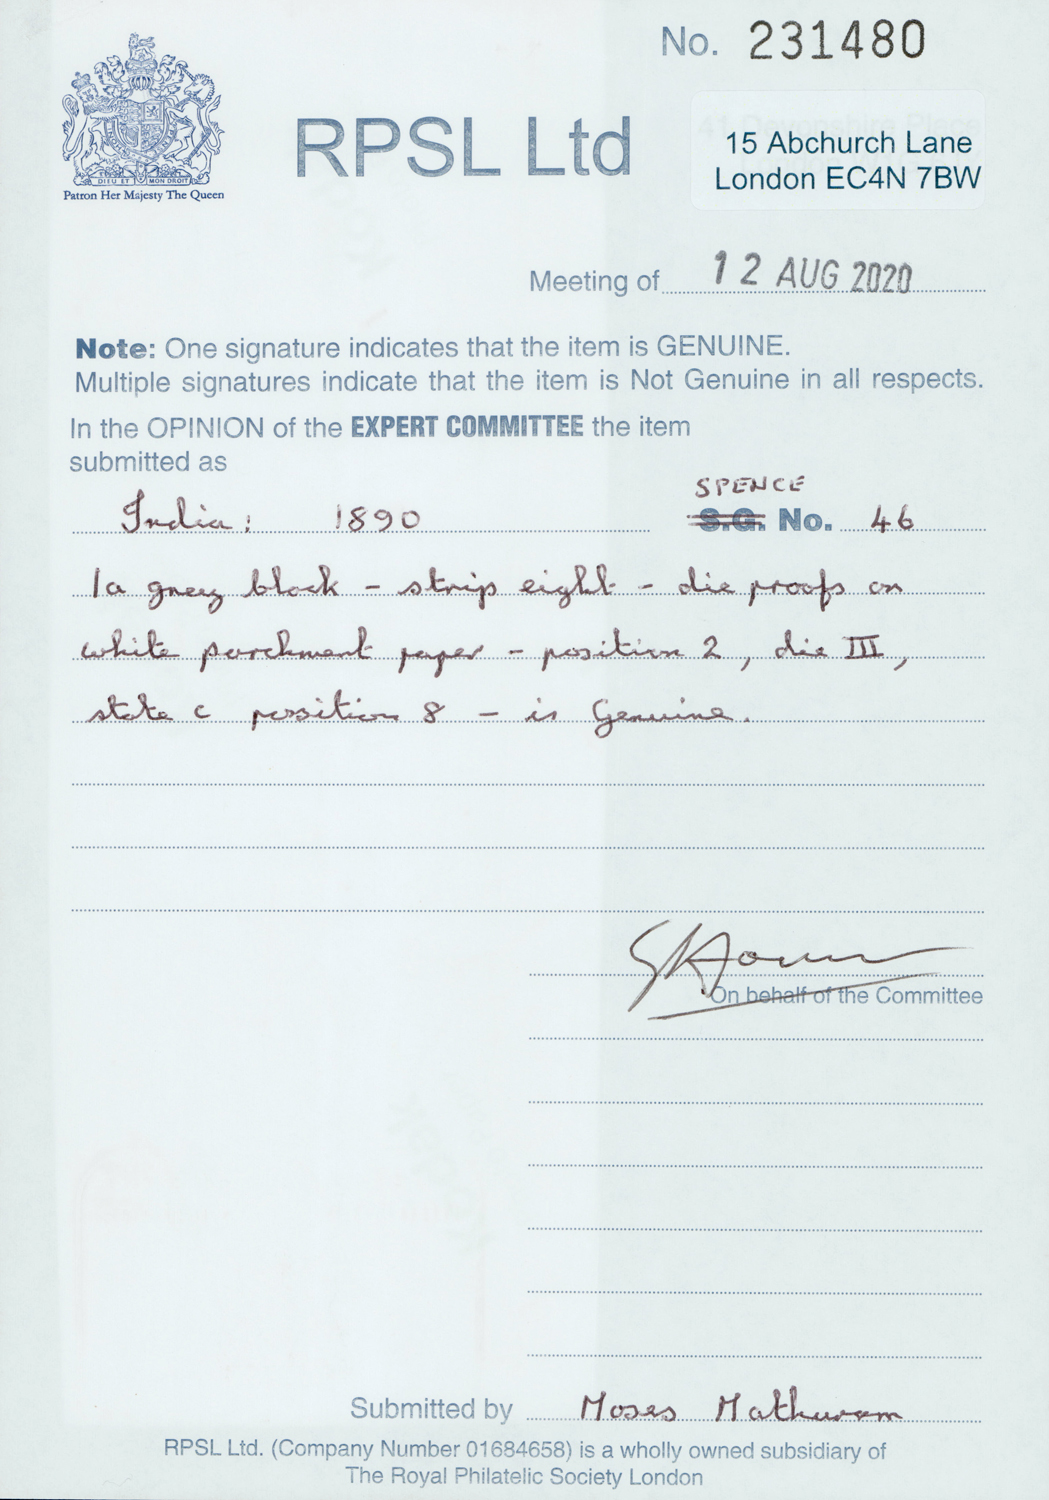 No. 231480
RPSL Ltd
15 Abchurch Lane
London EC4N 7BW
DIEU ET MON DROIT
Patron Her Majesty The Queen
Meeting of 12 AUG 2020
Note: One signature indicates that the item is GENUINE.
Multiple signatures indicate that the item is Not Genuine in all respects.
In the OPINION of the EXPERT COMMITTEE the item
submitted as
SPENCE
India: 1890 S.G. No. 46
1a grey block - strip eight - die proofs on
white parchment paper - position 2, die III,
state c position 8 - is Genuine.
On behalf of the Committee
Submitted by Moses Mathuram
RPSL Ltd. (Company Number 01684658) is a wholly owned subsidiary of
The Royal Philatelic Society London